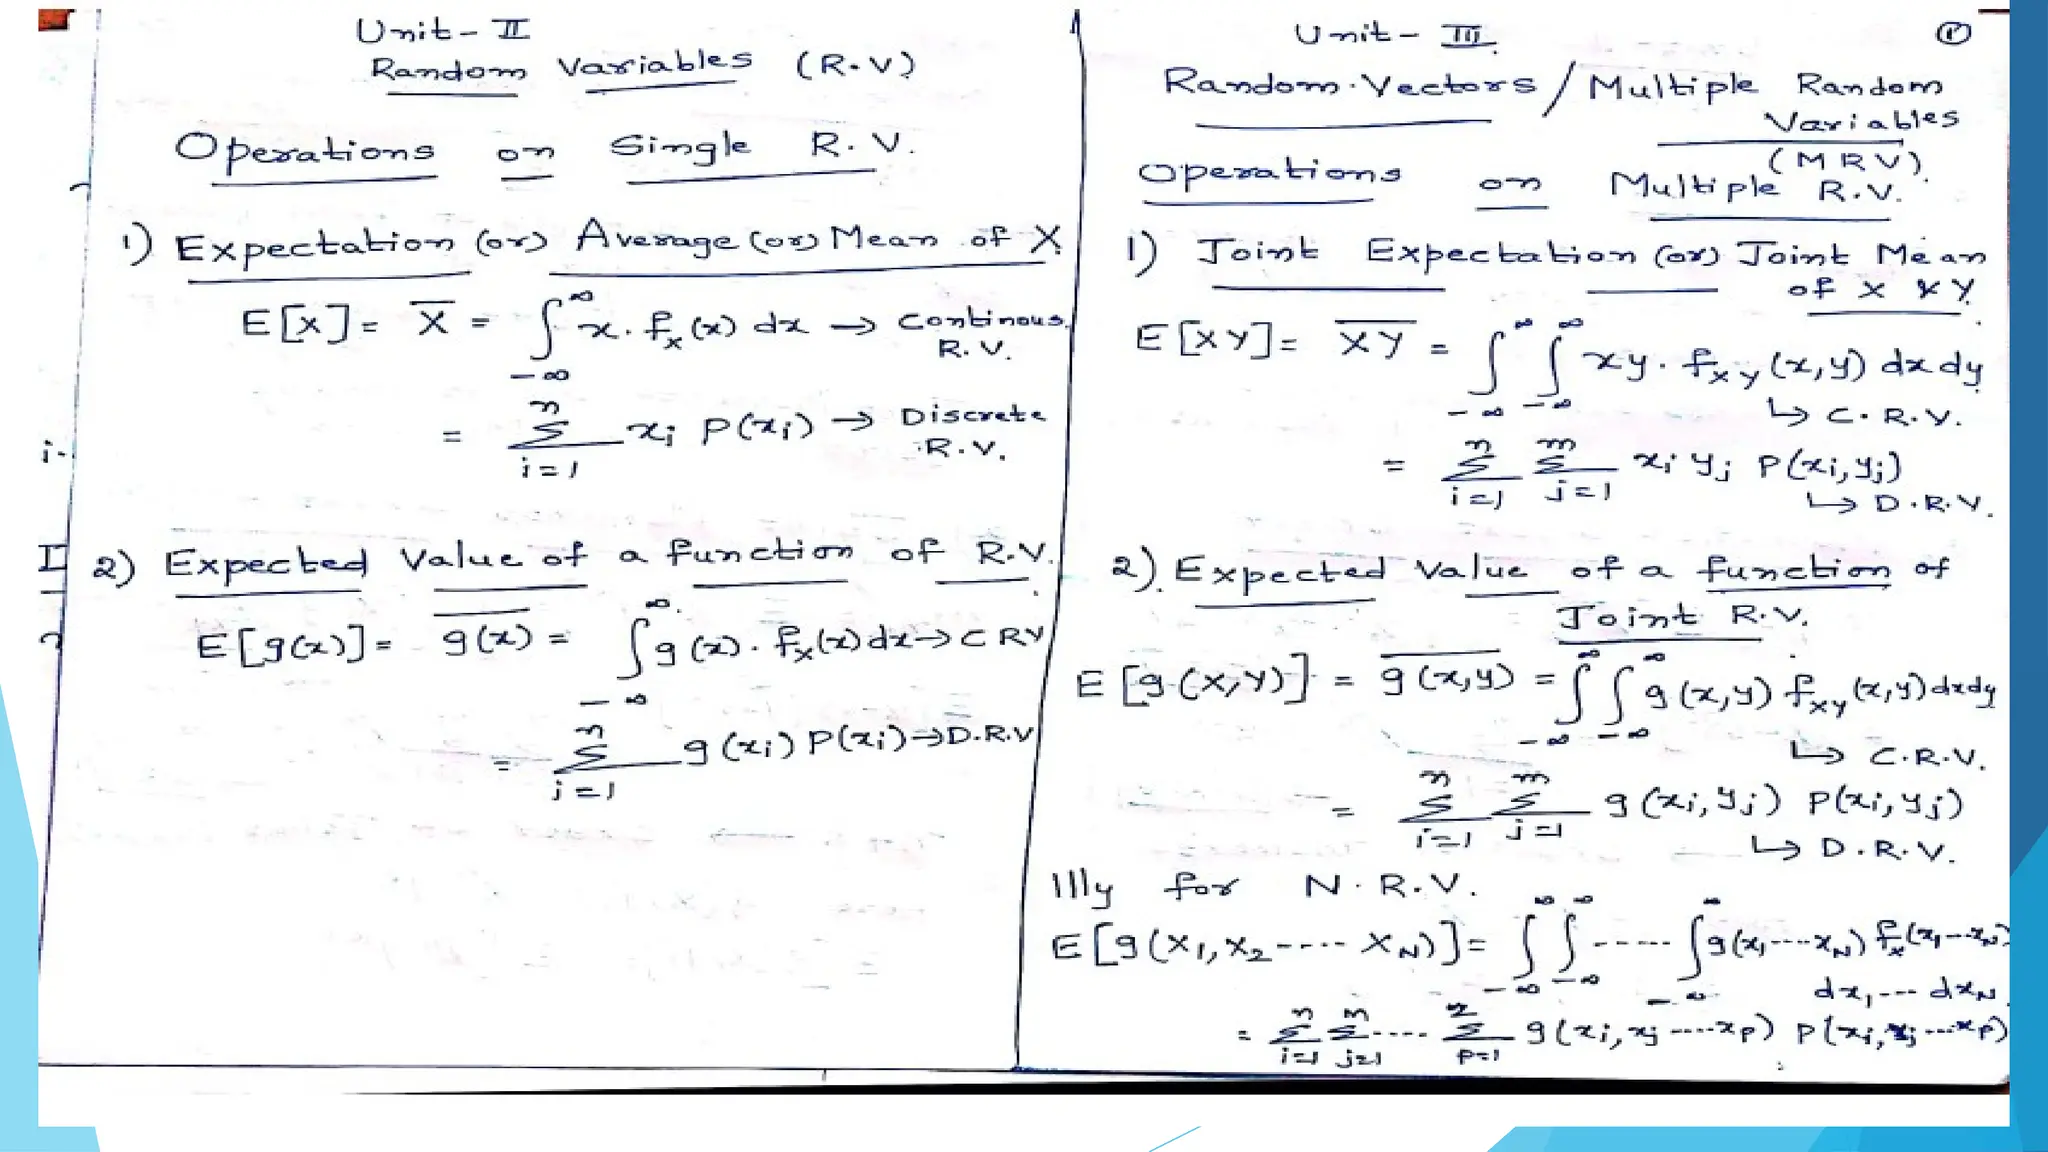 Unit - II
Random Variables (R.V)
Operations on Single R.V.
1) Expectation (or) Average (or) Mean of X
E[X] = X̅ = ∫_{-∞}^{∞} x. f_X(x) dx → Continous R.V.
= Σ_{i=1}^{n} x_i P(x_i) → Discrete R.V.
2) Expected Value of a function of R.V.
E[g(x)] = \overline{g(x)} = ∫_{-∞}^{∞} g(x). f_X(x) dx → C RV
= Σ_{i=1}^{n} g(x_i) P(x_i) → D.R.V
Unit - III
Random Vectors / Multiple Random
Variables
(MRV).
Operations on Multiple R.V.
1) Joint Expectation (or) Joint Mean
of X & Y
E[XY] = \overline{XY} = ∫_{-∞}^{∞} ∫_{-∞}^{∞} xy. f_{XY}(x,y) dx dy
↳ C.R.V.
= Σ_{i=1}^{n} Σ_{j=1}^{m} x_i y_j P(x_i, y_j)
↳ D.R.V.
2). Expected Value of a function of
Joint R.V.
E[g(X,Y)] = \overline{g(x,y)} = ∫_{-∞}^{∞} ∫_{-∞}^{∞} g(x,y) f_{XY}(x,y) dx dy
↳ C.R.V.
= Σ_{i=1}^{n} Σ_{j=1}^{m} g(x_i, y_j) P(x_i, y_j)
↳ D.R.V.
Illly for N.R.V.
E[g(X_1, X_2 ---- X_N)] = ∫_{-∞}^{∞} ∫_{-∞}^{∞} ----- ∫_{-∞}^{∞} g(x_1 ---- x_N) f_x(x_1 --- x_N)
dx_1 --- dx_N
= Σ_{i=1}^{n} Σ_{j=1}^{m} ---- Σ_{p=1} g(x_i, x_j ---- x_p) P(x_i, x_j --- x_p)